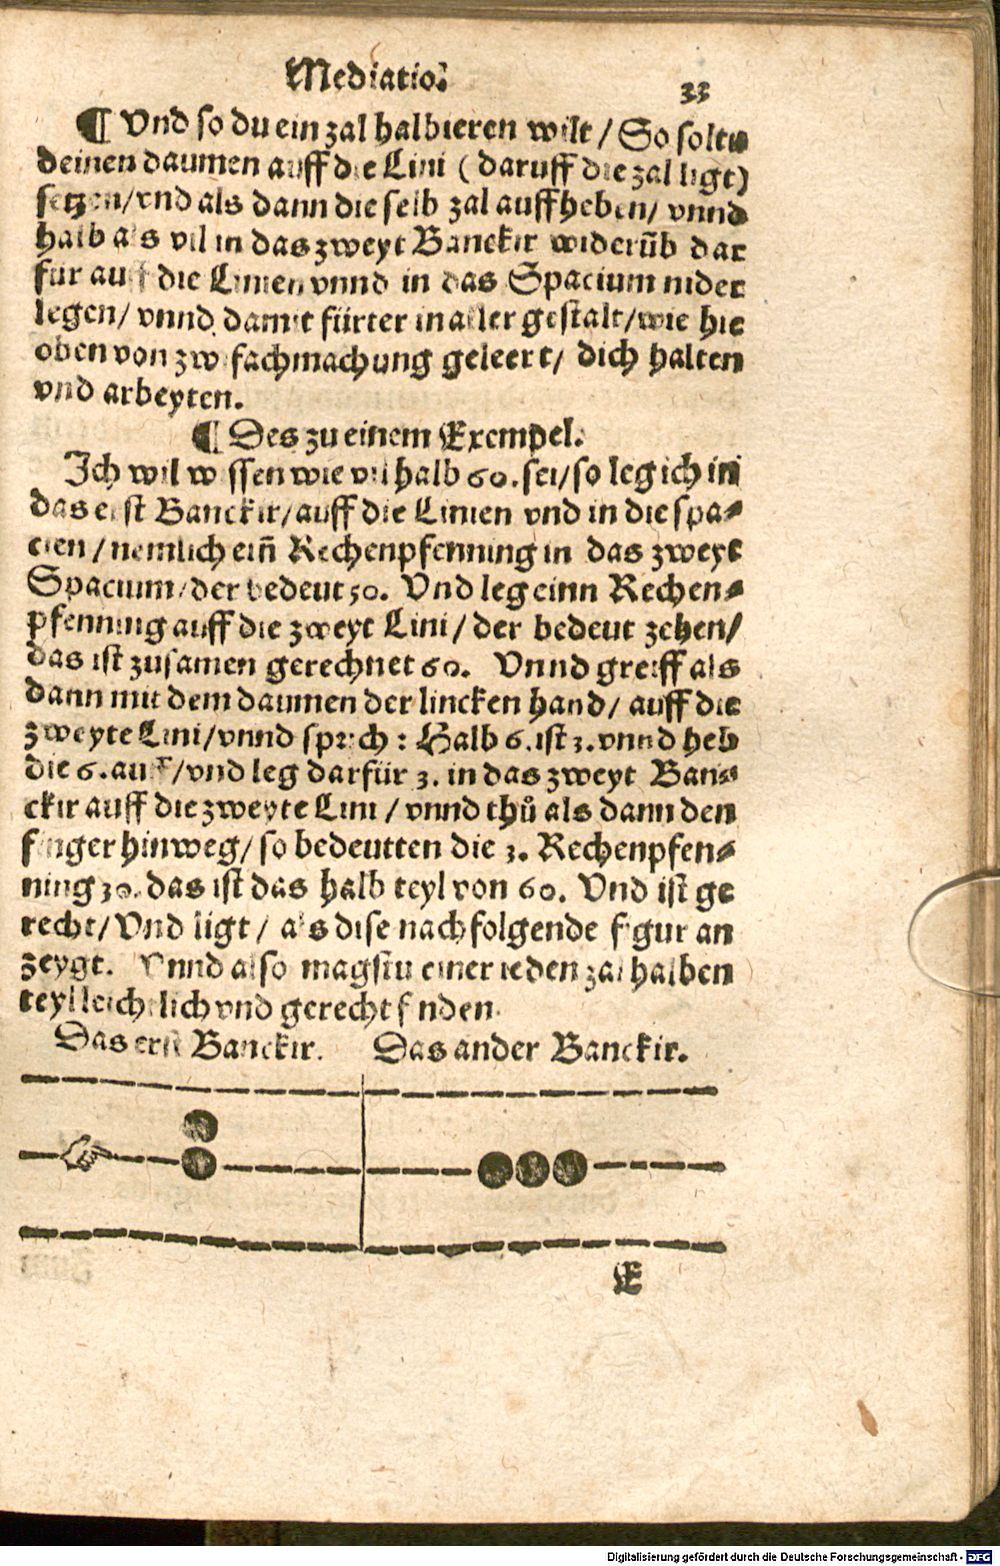 Mediatio.
33
¶ Vnd so du ein zal halbieren wilt / So soltu
deinen daumen auff die Lini ( daruff die zal ligt)
setzen/vnd als dann die selb zal auffheben/ vnnd
halb als vil in das zweyt Banckir widerũb dar
für auff die Linien vnnd in das Spacium nider
legen/ vnnd damit fürter in aller gestalt/wie hie
oben von zwifachmachung geleert/ dich halten
vnd arbeyten.
¶ Des zu einem Exempel.
Ich wil wissen wie vil halb 60. sei/so leg ich in
das erst Banckir/auff die Linien vnd in die spa⸗
cien / nemlich ein̄ Rechenpfenning in das zweyt
Spacium/der bedeut 50. Vnd leg einn Rechen⸗
pfenning auff die zweyt Lini / der bedeut zehen/
das ist zusamen gerechnet 60. Vnnd greiff als
dann mit dem daumen der lincken hand/ auff die
zweyte Lini/vnnd sprich : Halb 6. ist 3. vnnd heb
die 6. auff/vnd leg darfür 3. in das zweyt Ban⸗
ckir auff die zweyte Lini / vnnd thů als dann den
finger hinweg/ so bedeutten die 3. Rechenpfen⸗
ning 30. das ist das halb teyl von 60. Vnd ist ge
recht/Vnd ligt / als dise nachfolgende figur an
zeygt. Vnnd also magstu einer ieden zal halben
teyl leichtlich vnd gerecht finden.
Das erst Banckir. Das ander Banckir.
E
Digitalisierung gefördert durch die Deutsche Forschungsgemeinschaft - DFG